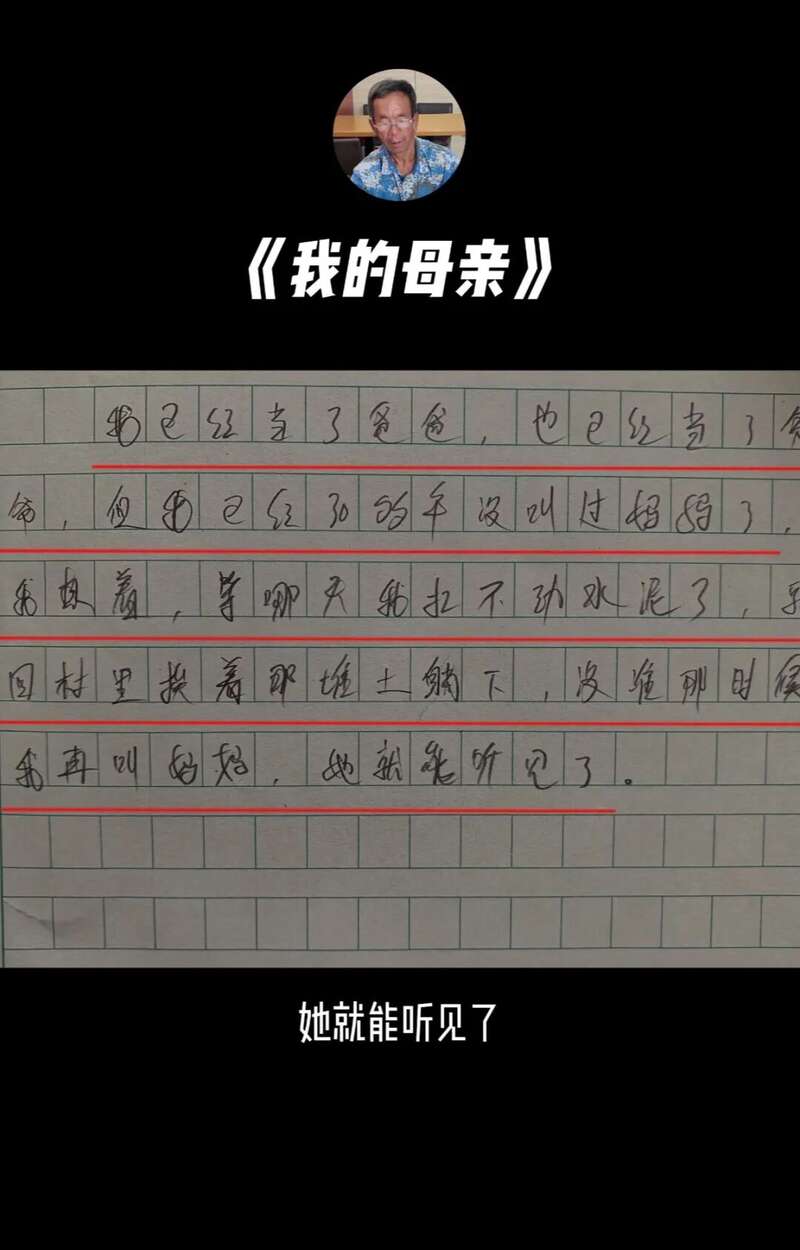 《我的母亲》
我已经当了爸爸，也已经当了爷
爷，但我已经30的年没叫过妈妈了，
我想着，等哪天我扛不动水泥了，
回村里挨着那堆土躺下，没准那时候
我再叫妈妈，她就能听见了。
她就能听见了